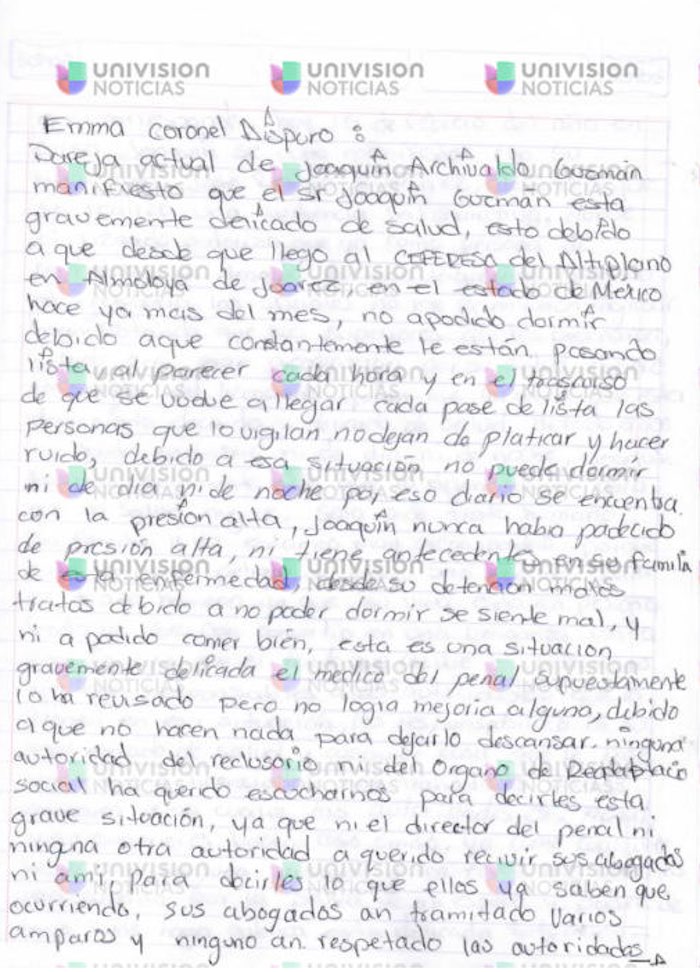 UNIVISION NOTICIAS UNIVISION NOTICIAS UNIVISION NOTICIAS
Emma Coronel Aispuro :
Pareja actual de Joaquín Archivaldo Guzmán
manifiesto que el sr Joaquín Guzmán esta
gravemente delicado de salud, esto debido
a que desde que llego al CEFERESO del Altiplano
en Almoloya de Juarez, en el estado de México
hace ya mas del mes, no apodido dormir
debido aque constantemente le están pasando
lista, al parecer cada hora y en el trascurso
de que se vuelve a llegar cada pase de lista las
personas que lo vigilan no dejan de platicar y hacer
ruido, debido a esa situación no puede dormir
ni de dia ni de noche por eso diario se encuentra
con la presión alta, Joaquín nunca habia padecido
de presión alta, ni tiene antecedentes en su familia
de esta enfermedad, desde su detención malos
tratos debido a no poder dormir se siente mal, y
ni a podido comer bién, esta es una situación
gravemente delicada el medico del penal supuestamente
lo ha revisado pero no logra mejoria alguna, debido
a que no hacen nada para dejarlo descansar. ninguna
autoridad del reclusorio ni del Organo de Readaptació
social ha querido escucharnos para decirles esta
grave situación, ya que ni el director del penal ni
ninguna otra autoridad a querido recivir sus abogados
ni ami para decirles lo que ellos ya saben que
ocurriendo, sus abogados an tramitado varios
amparos y ninguno an respetado las autoridades